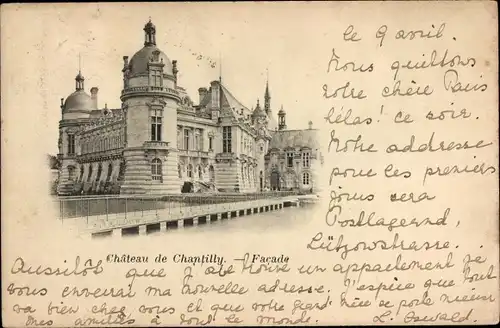 le 9 avril.
Nous quittons
votre chère Paris
hélas! ce soir.
Notre addresse
pour les premiers
jours sera
Postlagernd,
Lützowstrasse.
Château de Chantilly. — Façade
Aussitôt que j'ai trouvé un appartement je
vous enverrai ma nouvelle adresse. J'espère que tout
va bien chez vous et que votre grand' mère se porte mieux
Mes amitiés à tout le monde. L. Oswald.